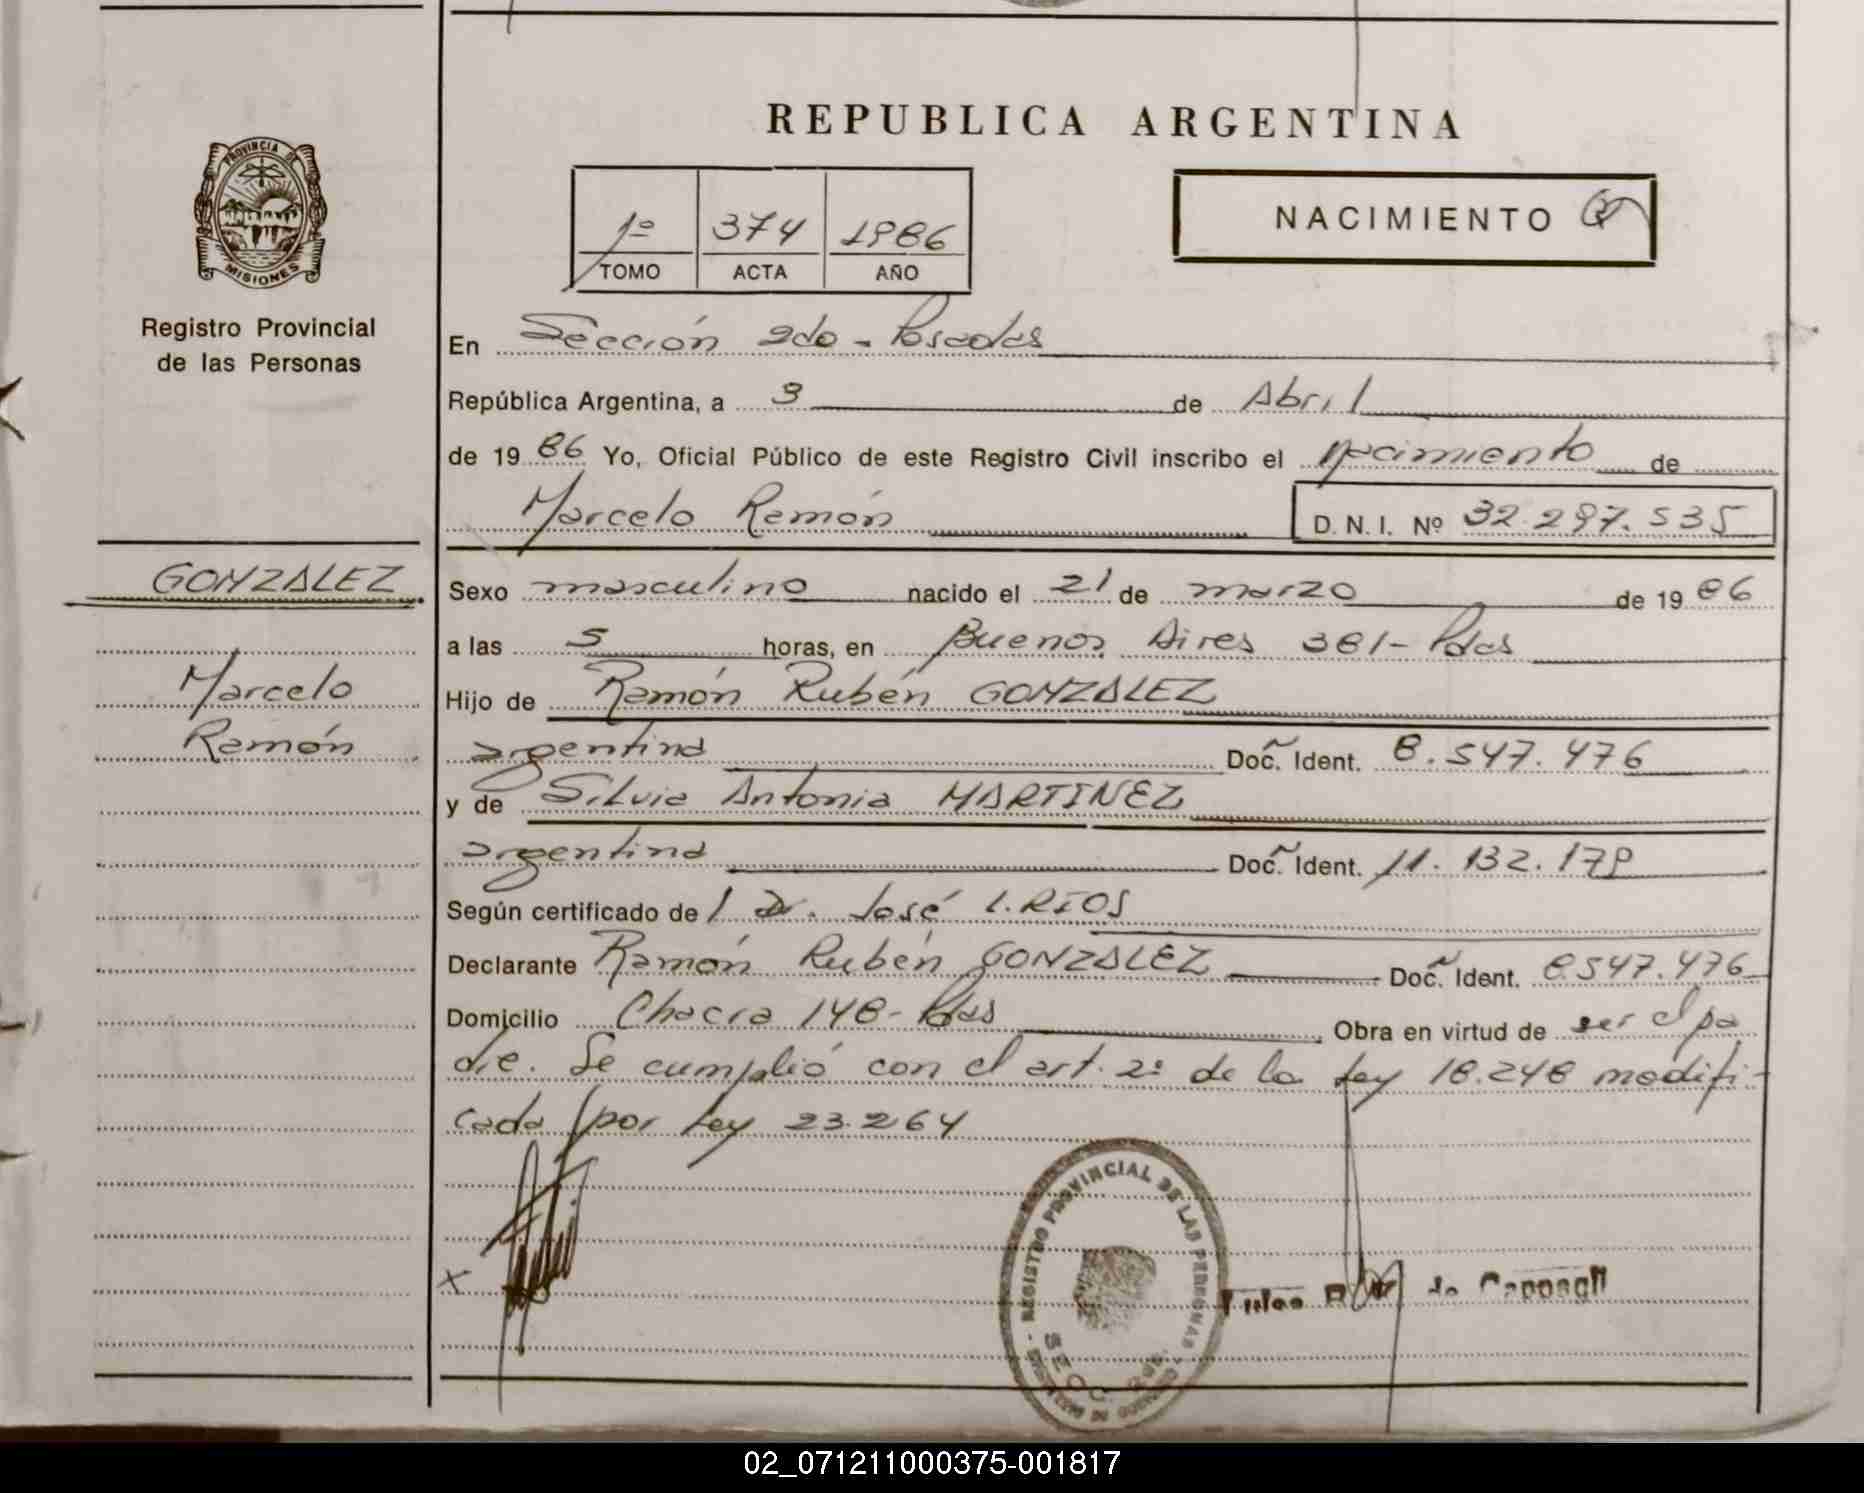 REPUBLICA ARGENTINA
PROVINCIA DE MISIONES
Registro Provincial
de las Personas
1º 374 1986
TOMO ACTA AÑO
NACIMIENTO
En Sección 2do - Posadas
República Argentina, a 3 de Abril
de 19 86 Yo, Oficial Público de este Registro Civil inscribo el nacimiento de
Marcelo Ramón D.N.I. Nº 32.297.535
GONZALEZ
Marcelo
Ramón
Sexo masculino nacido el 21 de marzo de 19 86
a las 5 horas, en Buenos Aires 381 - Pdas
Hijo de Ramón Rubén GONZALEZ
argentina Doc. Ident. 8.547.476
y de Silvia Antonia MARTINEZ
argentina Doc. Ident. 11.132.179
Según certificado de / Dr. José L. RIOS
Declarante Ramón Rubén GONZALEZ Doc. Ident. 8.547.476
Domicilio Chacra 148 - Pdas Obra en virtud de ser el pa
dre. Se cumplió con el art. 2º de la Ley 18.248 modifi-
cada por Ley 23.264
X
REGISTRO PROVINCIAL DE LAS PERSONAS
02_071211000375-001817